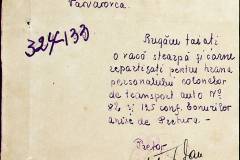 Varvarovca
324-133
Rugăm tăiați
o vacă stearpă și carne
repartizați pentru hrana
personalului coloanelor
de transport auto No
82 și 125 conf. bonurilor
de Pretura. -
Pretor